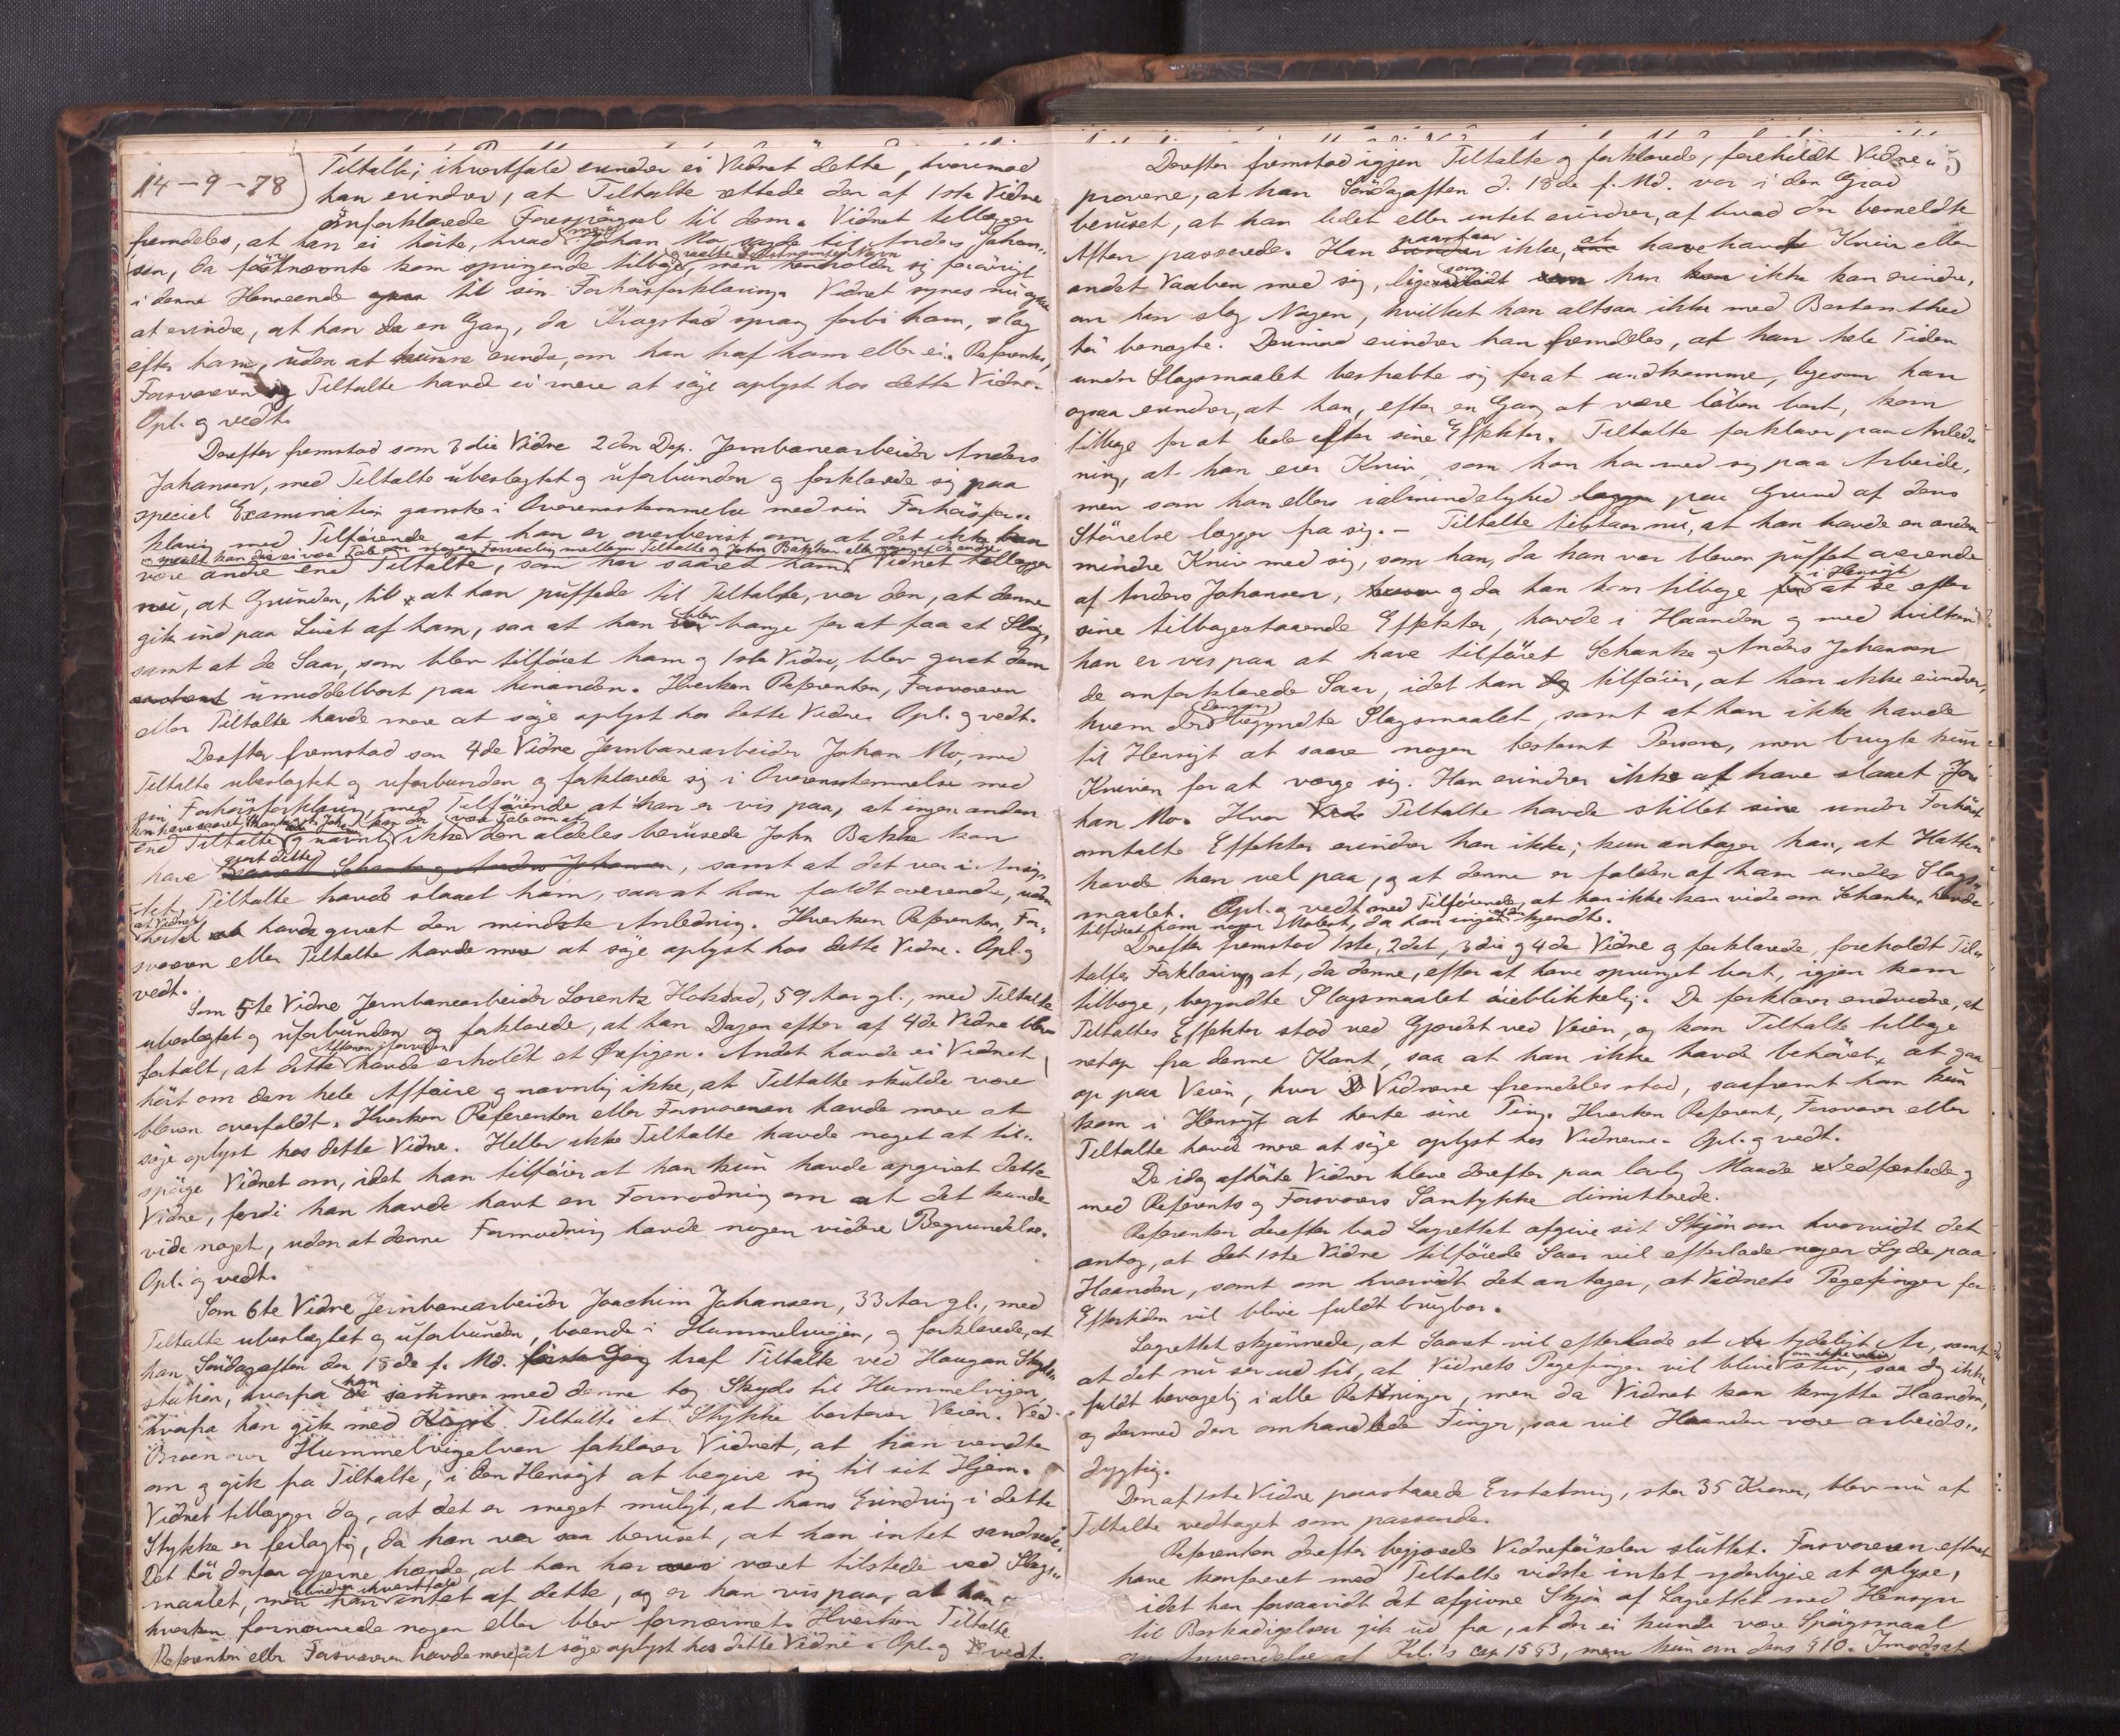 14-9-78
Tiltalte; ihvertfald erindrer ei Vidnet dette, hvorimod
han erindrer, at Tiltalte rettede den af 1ste Vidne
omforklarede Forespørgsel til dem. Vidnet tillægger
fremdeles, at han ei hørte, hvad Johan Mo sagde til Anders Johan-
sen, da sidstnævnte kom springende tilbage, men henholder sig forøvrigt
i denne Henseende til sin Forhørsforklaring. Vidnet synes nu ogsaa
at erindre, at han da en Gang, da Kragstad sprang forbi ham, slog
efter ham, uden at kunne erindre, om han traf ham eller ei. Referenten,
Forsvareren og Tiltalte havde ei mere at søge oplyst hos dette Vidne.
Opl. og vedt.
Derefter fremstod som 3die Vidne 2den Dep. Jernbanearbeider Anders
Johansen, med Tiltalte ubeslægtet og uforbunden og forklarede sig paa
speciel Examination ganske i Overensstemmelse med sin Forhørsfor-
klaring med Tilføiende at han er overbevist om, at det ikke kan
være andre end Tiltalte, som har saaret ham. Vidnet tillægger
nu, at Grunden, til at han puffede til Tiltalte, var den, at denne
gik ind paa Livet af ham, saa at han blev bange for at faa et Slag,
samt at de Saar, som blev tilføiet ham og 1ste Vidne, blev givet dem
umiddelbart paa hinanden. Hverken Referenten, Forsvareren
eller Tiltalte havde mere at søge oplyst hos dette Vidne. Opl. og vedt.
Derefter fremstod som 4de Vidne Jernbanearbeider Johan Mo, med
Tiltalte ubeslægtet og uforbunden og forklarede sig i Overensstemmelse med
sin Forhørsforklaring, med Tilføiende at han er vis paa, at ingen anden
end Tiltalte og navnlig ikke den aldeles berusede John Bakke kan
have gjort dette, samt at det var i
Tiltalte havde slaaet ham, saa at han faldt overende, uden
at Vidnet havde givet den mindste Anledning. Hverken Referenten, For-
svareren eller Tiltalte havde mere at søge oplyst hos dette Vidne. Opl. og
vedt.
Som 5te Vidne Jernbanearbeider Lorentz Hokstad, 59 Aar gl., med Tiltalte
ubeslægtet og uforbunden og forklarede, at han Dagen efter af 4de Vidne blev
fortalt, at dette Aftenen iforveien havde erholdt et Ørefigen. Andet havde ei Vidnet
hørt om den hele Affaire og navnlig ikke, at Tiltalte skulde være
bleven overfaldt. Hverken Referenten eller Forsvareren havde mere at
søge oplyst hos dette Vidne. Heller ikke Tiltalte havde noget at til-
spørge Vidnet om, idet han tilføier at han kun havde opgivet dette
Vidne, fordi han havde havt en Formodning om at det kunde
vide noget, uden at denne Formodning havde nogen videre Begrundelse.
Opl. og vedt.
Som 6te Vidne Jernbanearbeider Joachim Johansen, 33 Aar gl., med
Tiltalte ubeslægtet og uforbunden, boende i Hummelvigen, og forklarede, at
han Søndagaften den 18de f. Md. traf Tiltalte ved Haugan Skyds-
station, hvorfra han sammen med denne tog Skyds til Hummelvigen,
hvorfra han gik med Tiltalte et Stykke bortover Veien. Ved
Broen over Hummelvigelven forklarer Vidnet, at han vendte
om og gik fra Tiltalte, i den Hensigt at begive sig til sit Hjem.
Vidnet tillægger dog, at det er meget muligt, at hans Erindring i dette
Stykke er feilagtig, da han var saa beruset, at han intet sandsede.
Det tør derfor gjerne hænde, at han har været tilstede ved Slags-
maalet, men han erindrer ihvertfald intet af dette, og er han vis paa, at han
hverken fornærmede nogen eller blev fornærmet. Hverken Tiltalte
Referenten eller Forsvareren havde mere at søge oplyst hos dette Vidne. Opl. og vedt.
5
Derefter fremstod igjen Tiltalte og forklarede, foreholdt Vidne-
provene, at han Søndagaften d. 18de f. Md. var i den Grad
beruset, at han lidet eller intet erindrer, af hvad der bemeldte
Aften passerede. Han paastaar ikke, at have havt Kniv eller
andet Vaaben med sig, ligesom han ikke kan erindre,
om han slog Nogen, hvilket han altsaa ikke med Bestemthed
tør benægte. Derimod erindrer han fremdeles, at han hele Tiden
under Slagsmaalet bestræbte sig for at undkomme, ligesom han
ogsaa erindrer, at han, efter en Gang at være løben bort, kom
tilbage for at lede efter sine Effekter. Tiltalte forklarer paa Anled-
ning, at han eier Kniv, som han har med sig paa Arbeide,
men som han ellers i almindelighed paa Grund af dens
Størrelse lægger fra sig. — Tiltalte tilstaar nu, at han havde en anden
mindre Kniv med sig, som han, da han var bleven puffet overende
af Anders Johansen, og da han kom tilbage i Hensigt at se efter
sine tilbagestaaende Effekter, havde i Haanden og med hvilken
han er vis paa at have tilføiet Schanke og Anders Johansen
de omforklarede Saar, idet han tilføier, at han ikke erindrer,
hvem der begyndte Slagsmaalet, samt at han ikke havde
til Hensigt at saare nogen bestemt Person, men brugte kun
Kniven for at værge sig. Han erindrer ikke at have slaaet Jo-
han Mo. Hvor Tiltalte havde stillet sine under Forhøret
omtalte Effekter erindrer han ikke; kun antager han, at Hatten
havde han vel paa, og at denne er falden af ham under Slags-
maalet. Opl. og vedt. med Tilføiende, at han ikke kan vide om Schanke havde
tilføiet ham nogen Molest, da han ingen af dem kjendte.
Derefter fremstod 1ste, 2det, 3die og 4de Vidne og forklarede, foreholdt Til-
taltes Forklaring, at, da denne, efter at have sprunget bort, igjen kom
tilbage, begyndte Slagsmaalet øieblikkelig. De forklarer endvidere, at
Tiltaltes Effekter stod ved Gjerdet ved Veien, og kom Tiltalte tilbage
netop fra denne Kant, saa at han ikke havde behøvet at gaa
op paa Veien, hvor Vidnerne fremdeles stod, saafremt han kun
kom i Hensigt at hente sine Ting. Hverken Referent, Forsvarer eller
Tiltalte havde mere at søge oplyst hos Vidnerne. Opl. og vedt.
De idag afhørte Vidner bleve derefter paa lovlig Maade edfæstede og
med Referents og Forsvarers Samtykke dimitterede.
Referenten derefter bad Lagrettet afgive sit Skjøn om hvorvidt det
antog, at det 1ste Vidne tilføiede Saar vil efterlade nogen Lyde paa
Haanden, samt om hvorvidt det antager, at Vidnets Pegefinger for
Eftertiden vil blive fuldt brugbar.
Lagrettet skjønnede, at Saaret vil efterlade et tydeligt Ar, samt
at det nu ser ud til, at Vidnets Pegefinger vil blive om ikke stiv, saa dog ikke
fuldt bevægelig i alle Retninger, men da Vidnet kan knytte Haanden,
og dermed den omhandlede Finger, saa vil Haanden være arbeids-
dygtig.
Den af 1ste Vidne paastaaede Erstatning, stor 35 Kroner, blev nu af
Tiltalte vedtaget som passende.
Referenten derefter begjærede Vidneførselen sluttet. Forsvareren efterat
have konfereret med Tiltalte vidste intet yderligere at oplyse,
idet han forsaavidt det afgivne Skjøn af Lagrettet med Hensyn
til Beskadigelsen gik ud fra, at der ei kunde være Spørgsmaal
om Anvendelse af Krl.'s Cap 15 § 3, men kun om dens § 10. Imodsat